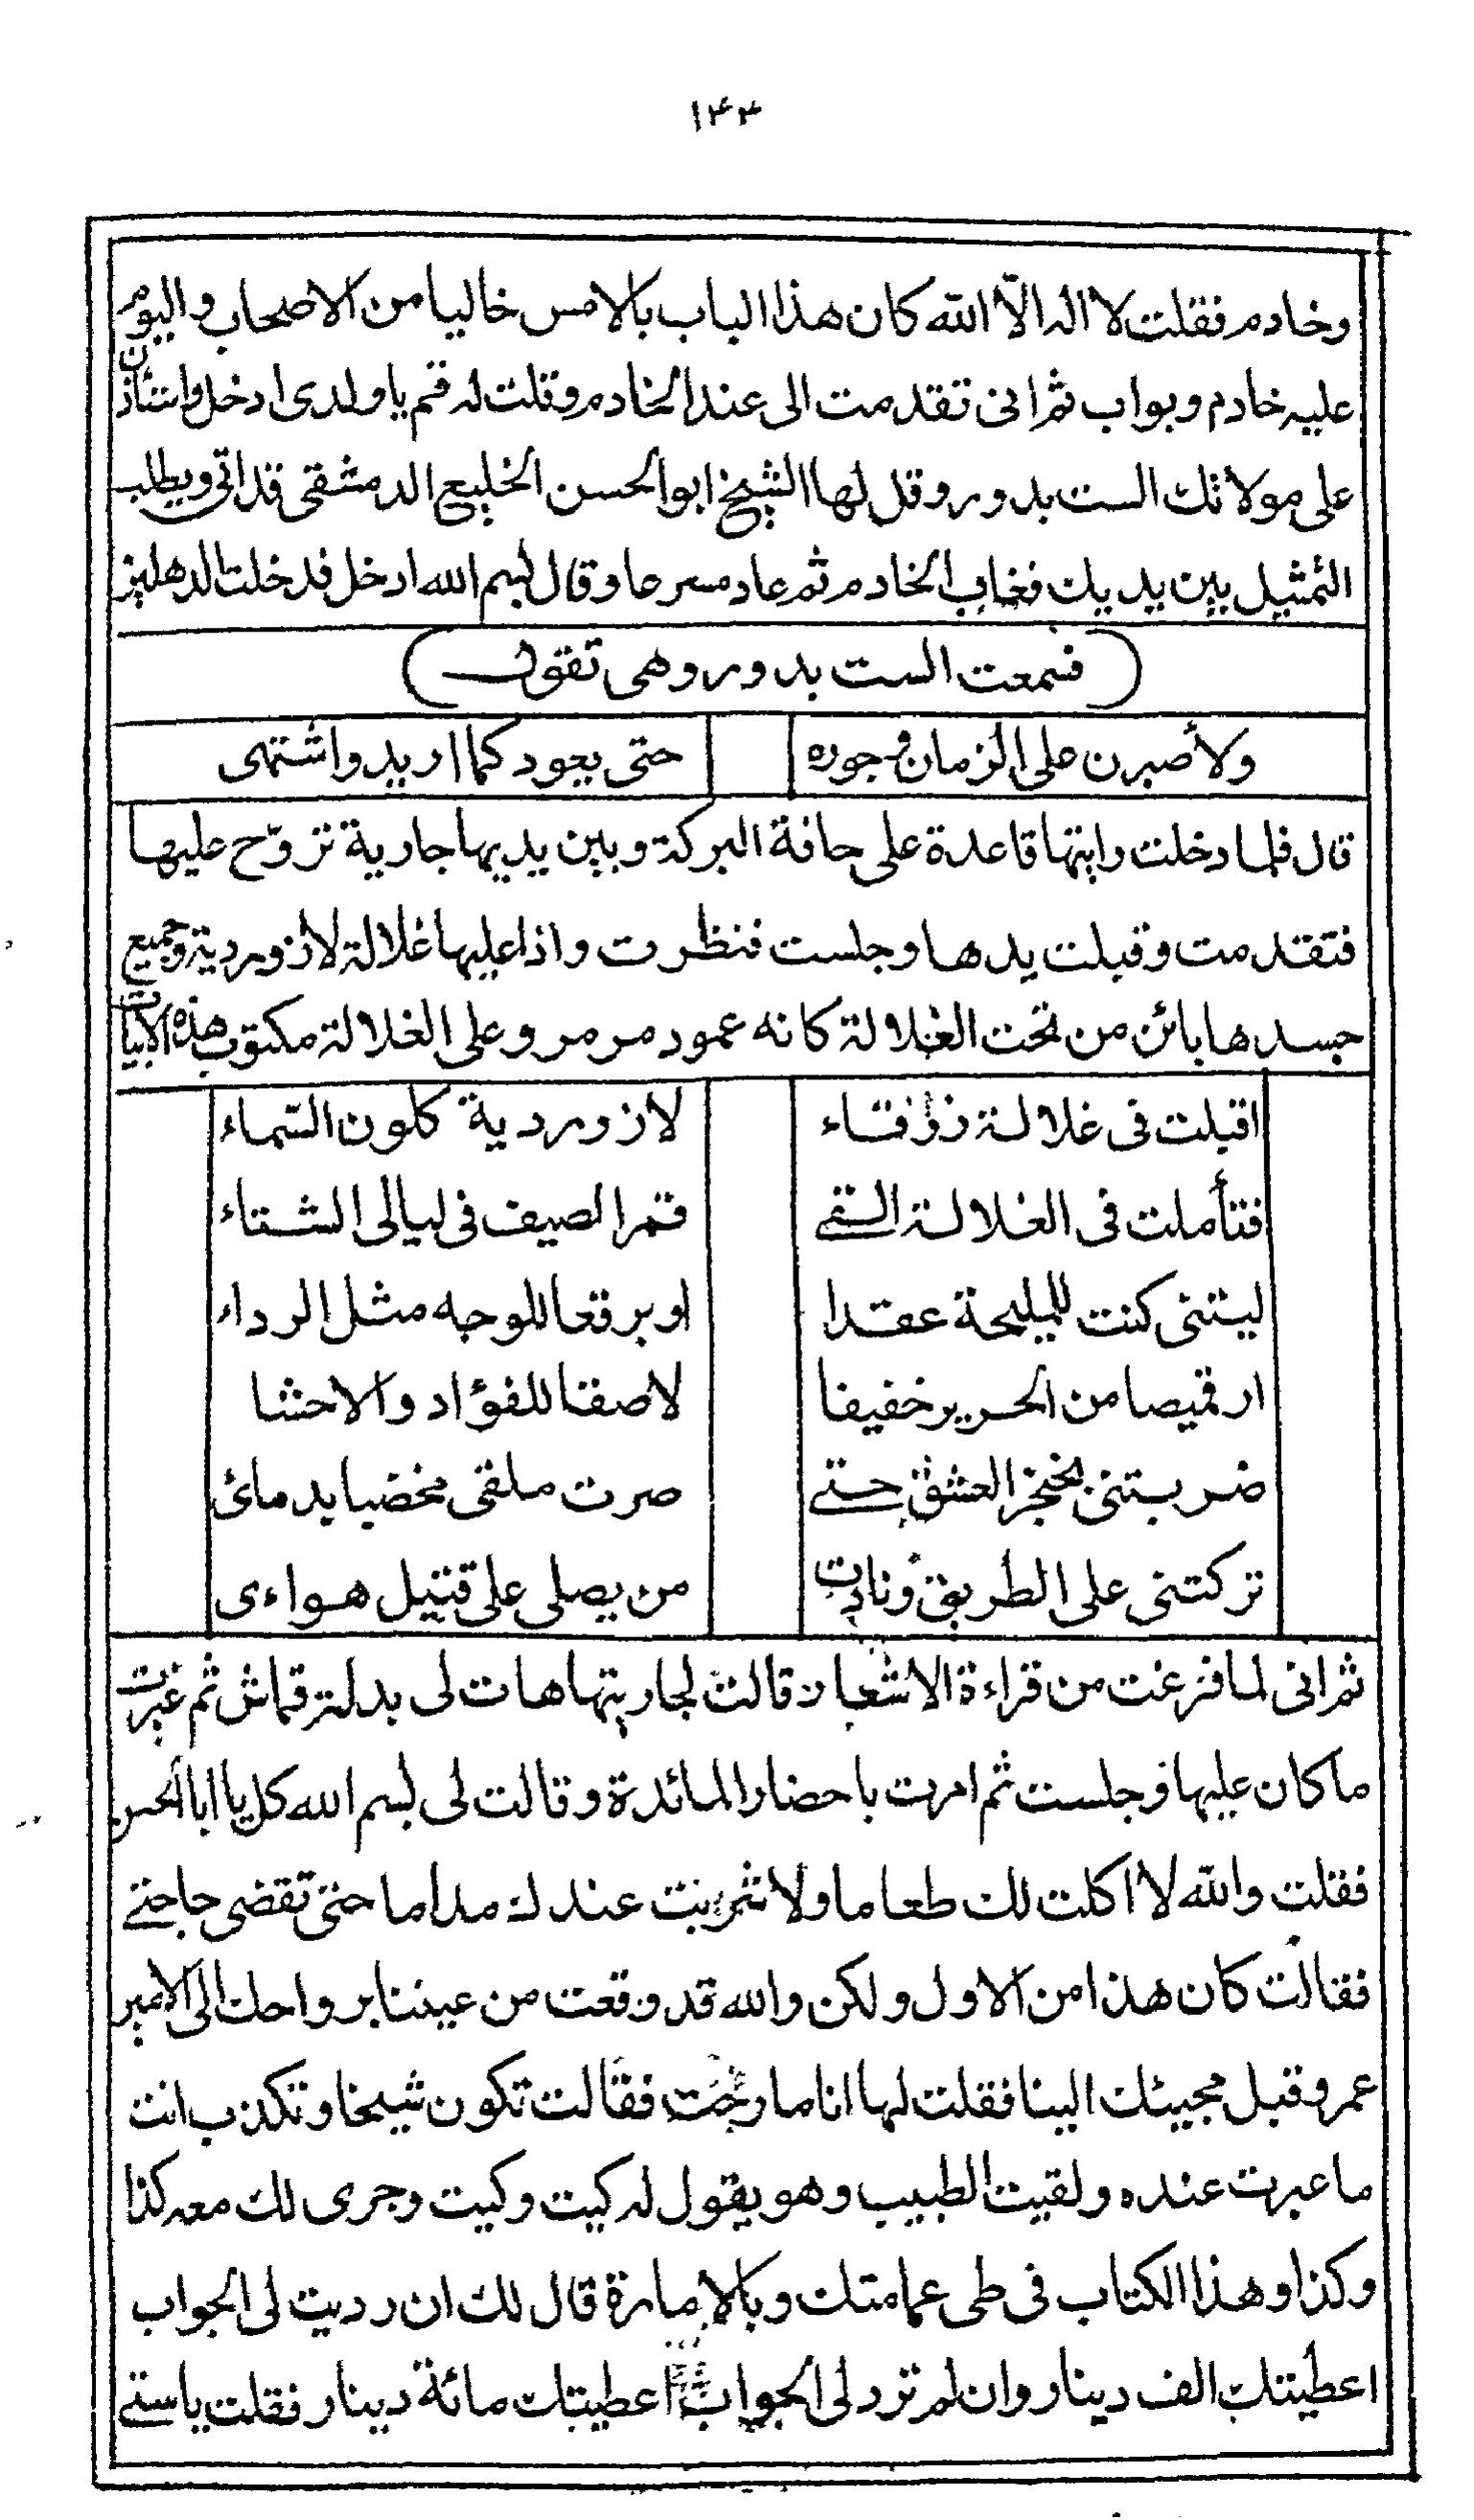 ١٤٣
وخادم فقلت لا اله الّا الله كان هذا الباب بالامس خاليا من الاصحاب واليوم
عليه خادم وبواب ثم انى تقدمت الى عند الخادم وقلت له قم يا ولدى ادخل واستأذن
على مولاتك الست بدور وقل لها الشيخ ابو الحسن الخليع الدمشقى قد اتى ويطلب
التمثيل بين يديك فغاب الخادم ثم عاد مسرعا وقال بسم الله ادخل فدخلت الدهليز
(فسمعت الست بدور وهى تقول)
ولأصبرن على الزمان وجوره حتى يعود كما اريد واشتهى
قال فلما دخلت رايتها قاعدة على حافة البركة وبين يديها جارية تروّح عليها
فتقدمت وقبلت يدها وجلست فنظرت واذا عليها غلالة لازوردية وجميع
جسدها بائن من تحت الغلالة كانه عمود مرمر وعلى الغلالة مكتوب هذه الابيات
اقبلت فى غلالة زرقاء لازوردية كلون السّماء
فتأملت فى الغلالة التى قمر الصيف فى ليالى الشتاء
ليتنى كنت للمليحة عقدا او برقعا للوجه مثل الرداء
او قميصا من الحرير خفيفا لاصقا للفؤاد والاحشا
ضربتنى بخنجر العشق حتى صرت ملقى مخضبا بدمائ
تركتنى على الطريق ونادت من يصلى على قتيل هواءى
ثم انى لما فرغت من قراءة الاشعار قالت لجاريتها هات لى بدلة قماش ثم غيرت
ما كان عليها وجلست ثم امرت باحضار المائدة وقالت لى بسم الله كل يا ابا الحسن
فقلت والله لا اكلت لك طعاما ولا شربت عندك مداما حتى تقضى حاجتى
فقالت كان هذا من الاول ولكن والله قد وقعت من عيننا برواحك الى الامير
عمرو قبل مجيئك الينا فقلت لها انا ما رحت فقالت تكون شيخا وتكذب انت
ما عبرت عنده ولقيت الطبيب وهو يقول له كيت وكيت وجرى لك معه كذا
وكذا وهذا الكتاب فى طى عمامتك وبالامارة قال لك ان رديت لى الجواب
اعطيتك الف دينار وان لم ترد لى الجواب اعطيتك مائة دينار فقلت يا ستى